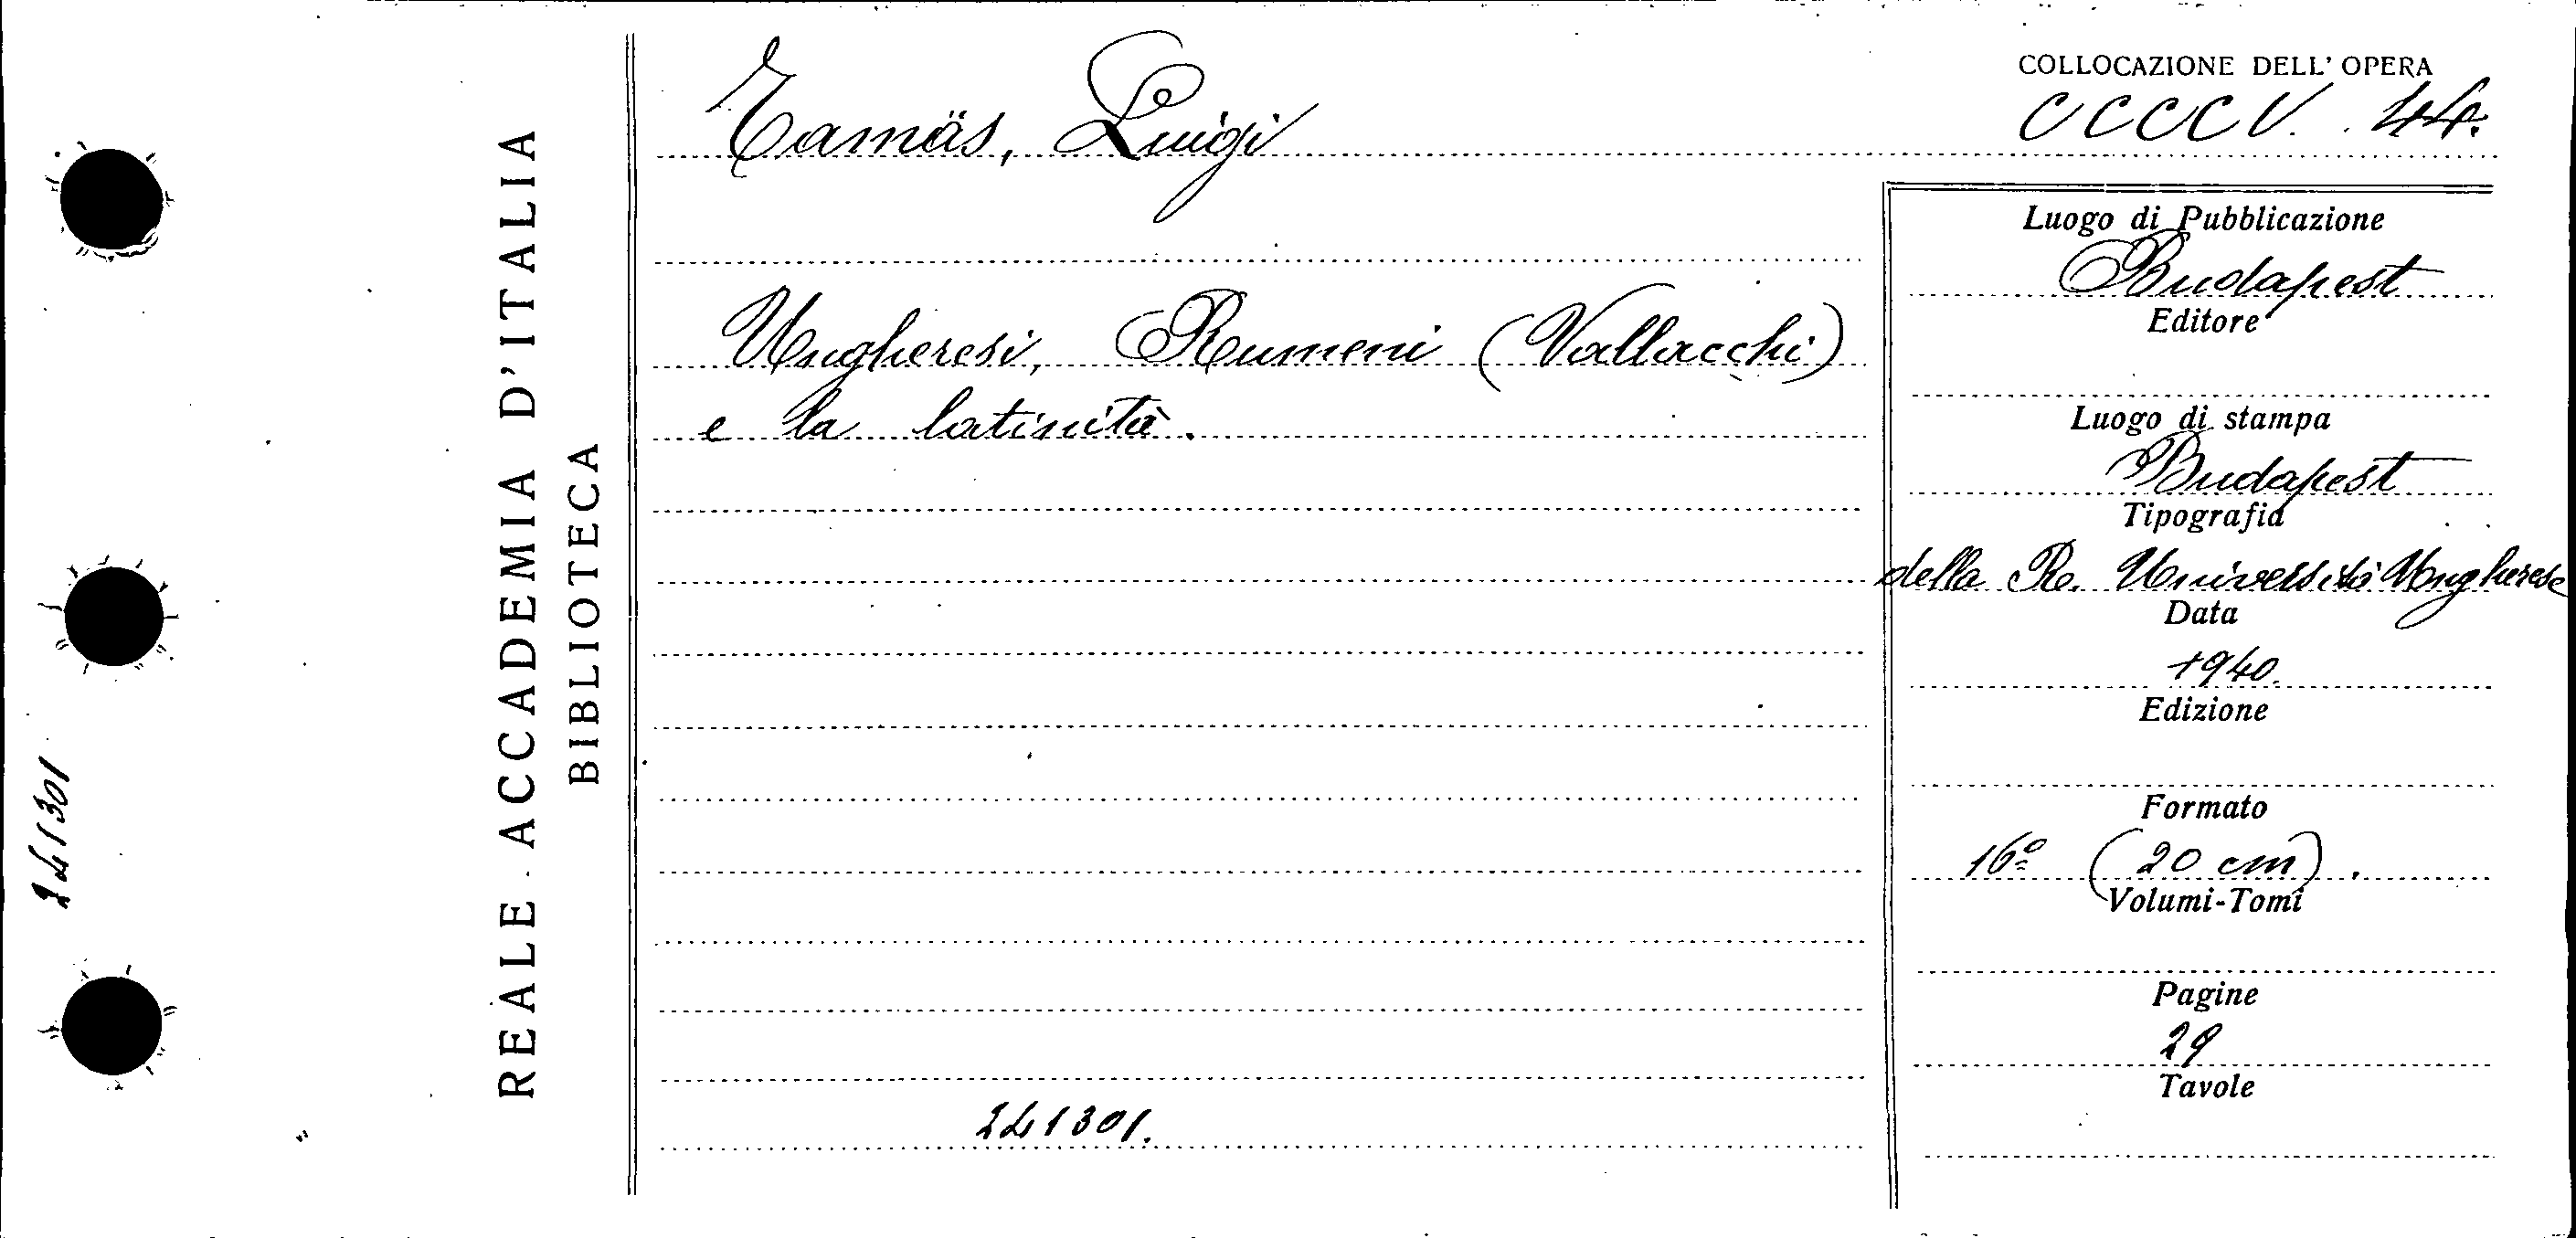 REALE ACCADEMIA D'ITALIA
BIBLIOTECA
241301
Tamäs, Luigi
Ungheresi, Rumeni (Vallacchi)
e la latinità.
241301.
COLLOCAZIONE DELL'OPERA
CCCCV. 44.
Luogo di Pubblicazione
Budapest
Editore
Luogo di stampa
Budapest
Tipografia
della Re. Università Ungherese
Data
1940.
Edizione
Formato
16º (20 cm).
Volumi-Tomi
Pagine
29
Tavole